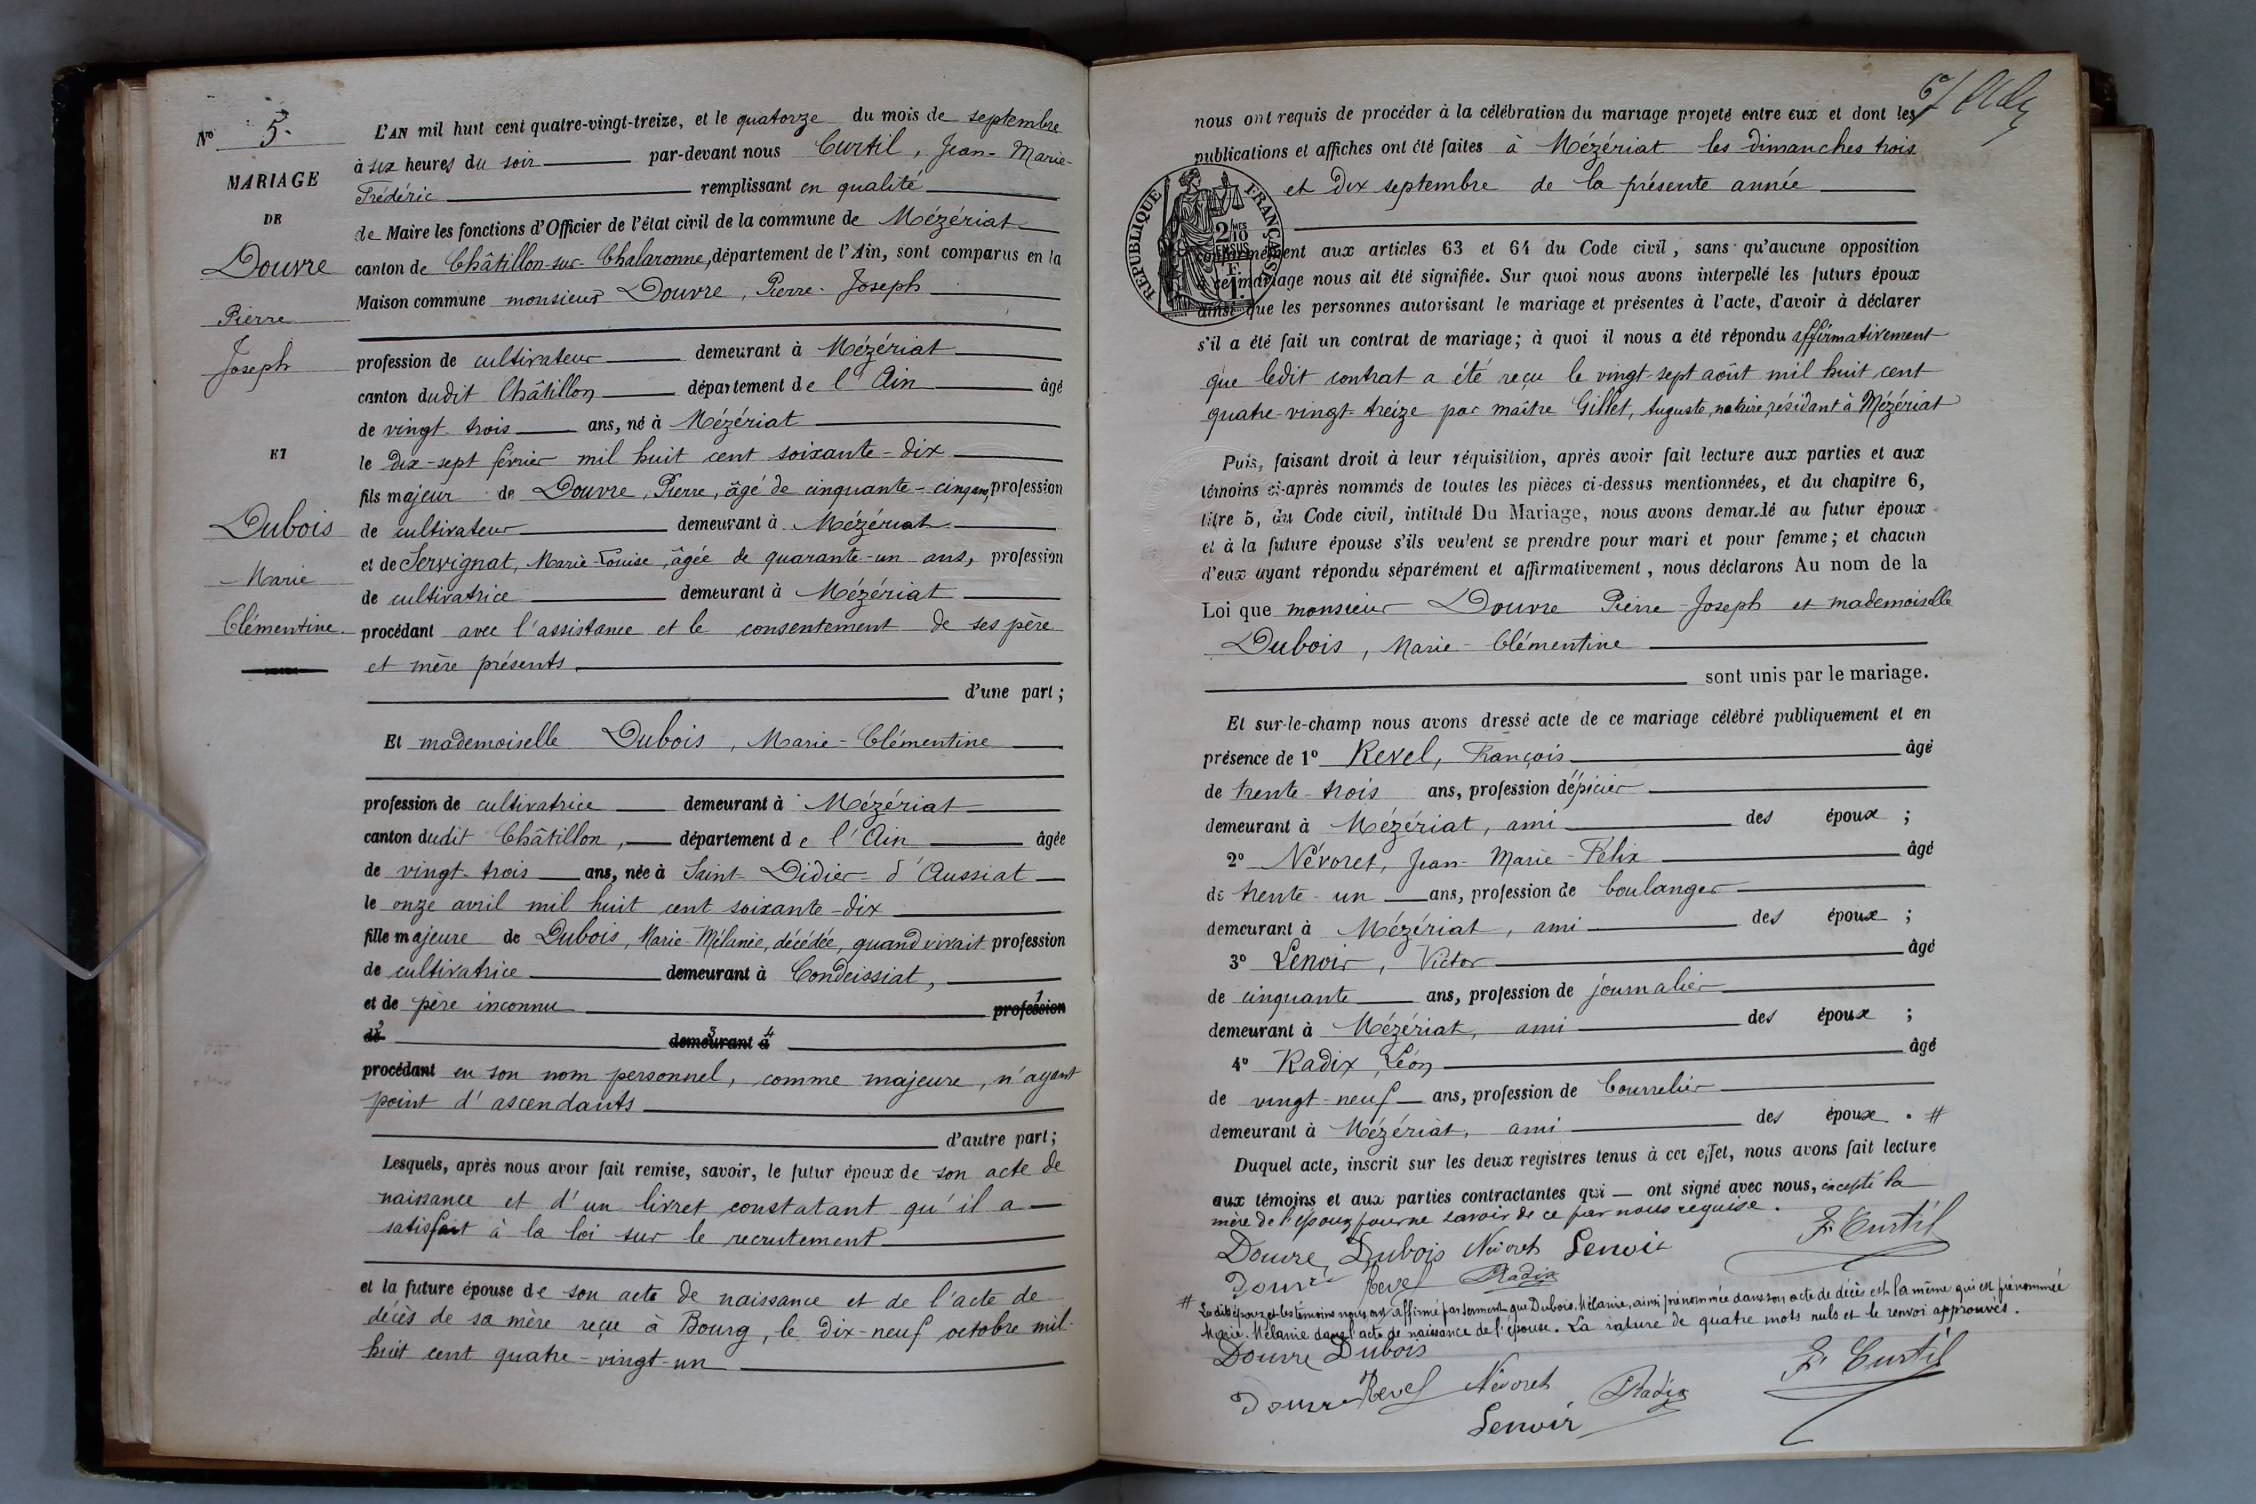 No 5.
MARIAGE
DE
Douvre
Pierre
Joseph
ET
Dubois
Marie
Clémentine.
L'AN mil huit cent quatre-vingt-treize, et le quatorze du mois de septembre
à six heures du soir par-devant nous Curtil, Jean-Marie-
Frédéric remplissant en qualité
de Maire les fonctions d'Officier de l'état civil de la commune de Mézériat
canton de Châtillon-sur-Chalaronne, département de l'Ain, sont comparus en la
Maison commune monsieur Douvre, Pierre-Joseph
profession de cultivateur demeurant à Mézériat
canton dudit Châtillon département de l'Ain âgé
de vingt-trois ans, né à Mézériat
le dix-sept février mil huit cent soixante-dix
fils majeur de Douvre, Pierre, âgé de cinquante-cinq ans, profession
de cultivateur demeurant à Mézériat
et de Servignat, Marie-Louise, âgée de quarante-un ans, profession
de cultivatrice demeurant à Mézériat
procédant avec l'assistance et le consentement de ses père
et mère présents
d'une part ;
Et mademoiselle Dubois, Marie-Clémentine
profession de cultivatrice demeurant à Mézériat
canton dudit Châtillon, département de l'Ain âgée
de vingt-trois ans, née à Saint-Didier-d'Aussiat
le onze avril mil huit cent soixante-dix
fille majeure de Dubois, Marie-Mélanie, décédée, quand vivait profession
de cultivatrice demeurant à Condeissiat,
et de père inconnu profession 1
de 2 demeurant 3 à 4
procédant en son nom personnel, comme majeure, n'ayant
point d'ascendants
d'autre part ;
Lesquels, après nous avoir fait remise, savoir, le futur époux de son acte de
naissance et d'un livret constatant qu'il a
satisfait à la loi sur le recrutement
et la future épouse de son acte de naissance et de l'acte de
décès de sa mère reçu à Bourg, le dix-neuf octobre mil-
huit cent quatre-vingt-un
nous ont requis de procéder à la célébration du mariage projeté entre eux et dont les
publications et affiches ont été faites à Mézériat les dimanches trois
et dix septembre de la présente année
RÉPUBLIQUE FRANÇAISE
2/10 EN SUS
conformément aux articles 63 et 64 du Code civil, sans qu'aucune opposition
à ce mariage nous ait été signifiée. Sur quoi nous avons interpellé les futurs époux
ainsi que les personnes autorisant le mariage et présentes à l'acte, d'avoir à déclarer
s'il a été fait un contrat de mariage ; à quoi il nous a été répondu affirmativement
que ledit contrat a été reçu le vingt-sept août mil huit cent
quatre-vingt-treize par maître Gillet, Auguste, notaire, résidant à Mézériat
Puis, faisant droit à leur réquisition, après avoir fait lecture aux parties et aux
témoins ci-après nommés de toutes les pièces ci-dessus mentionnées, et du chapitre 6,
titre 5, du Code civil, intitulé Du Mariage, nous avons demandé au futur époux
et à la future épouse s'ils veulent se prendre pour mari et pour femme ; et chacun
d'eux ayant répondu séparément et affirmativement, nous déclarons Au nom de la
Loi que monsieur Douvre Pierre-Joseph et mademoiselle
Dubois, Marie-Clémentine
sont unis par le mariage.
Et sur-le-champ nous avons dressé acte de ce mariage célébré publiquement et en
présence de 1º Revel, François âgé
de trente-trois ans, profession d'épicier
demeurant à Mézériat, ami des époux ;
2º Névoret, Jean-Marie-Félix âgé
de trente-un ans, profession de boulanger
demeurant à Mézériat, ami des époux ;
3º Lenoir, Victor âgé
de cinquante ans, profession de journalier
demeurant à Mézériat, ami des époux ;
4º Radix Léon âgé
de vingt-neuf ans, profession de Bourrelier
demeurant à Mézériat, ami des époux . #
Duquel acte, inscrit sur les deux registres tenus à cet effet, nous avons fait lecture
aux témoins et aux parties contractantes qui ont signé avec nous, excepté la
mère de l'époux pour ne savoir de ce par nous requise.
F. Curtil
Douvre Dubois Névoret Lenoir
Douvre Revel Radix
# Lesdits époux et les témoins nous ont affirmé par serment que Dubois, Mélanie, ainsi prénommée dans son acte de décès est la même qui est prénommée
Marie-Mélanie dans l'acte de naissance de l'épouse. La rature de quatre mots nuls et le renvoi approuvés.
Douvre Dubois
F. Curtil
Douvre Revel Névoret Radix
Lenoir